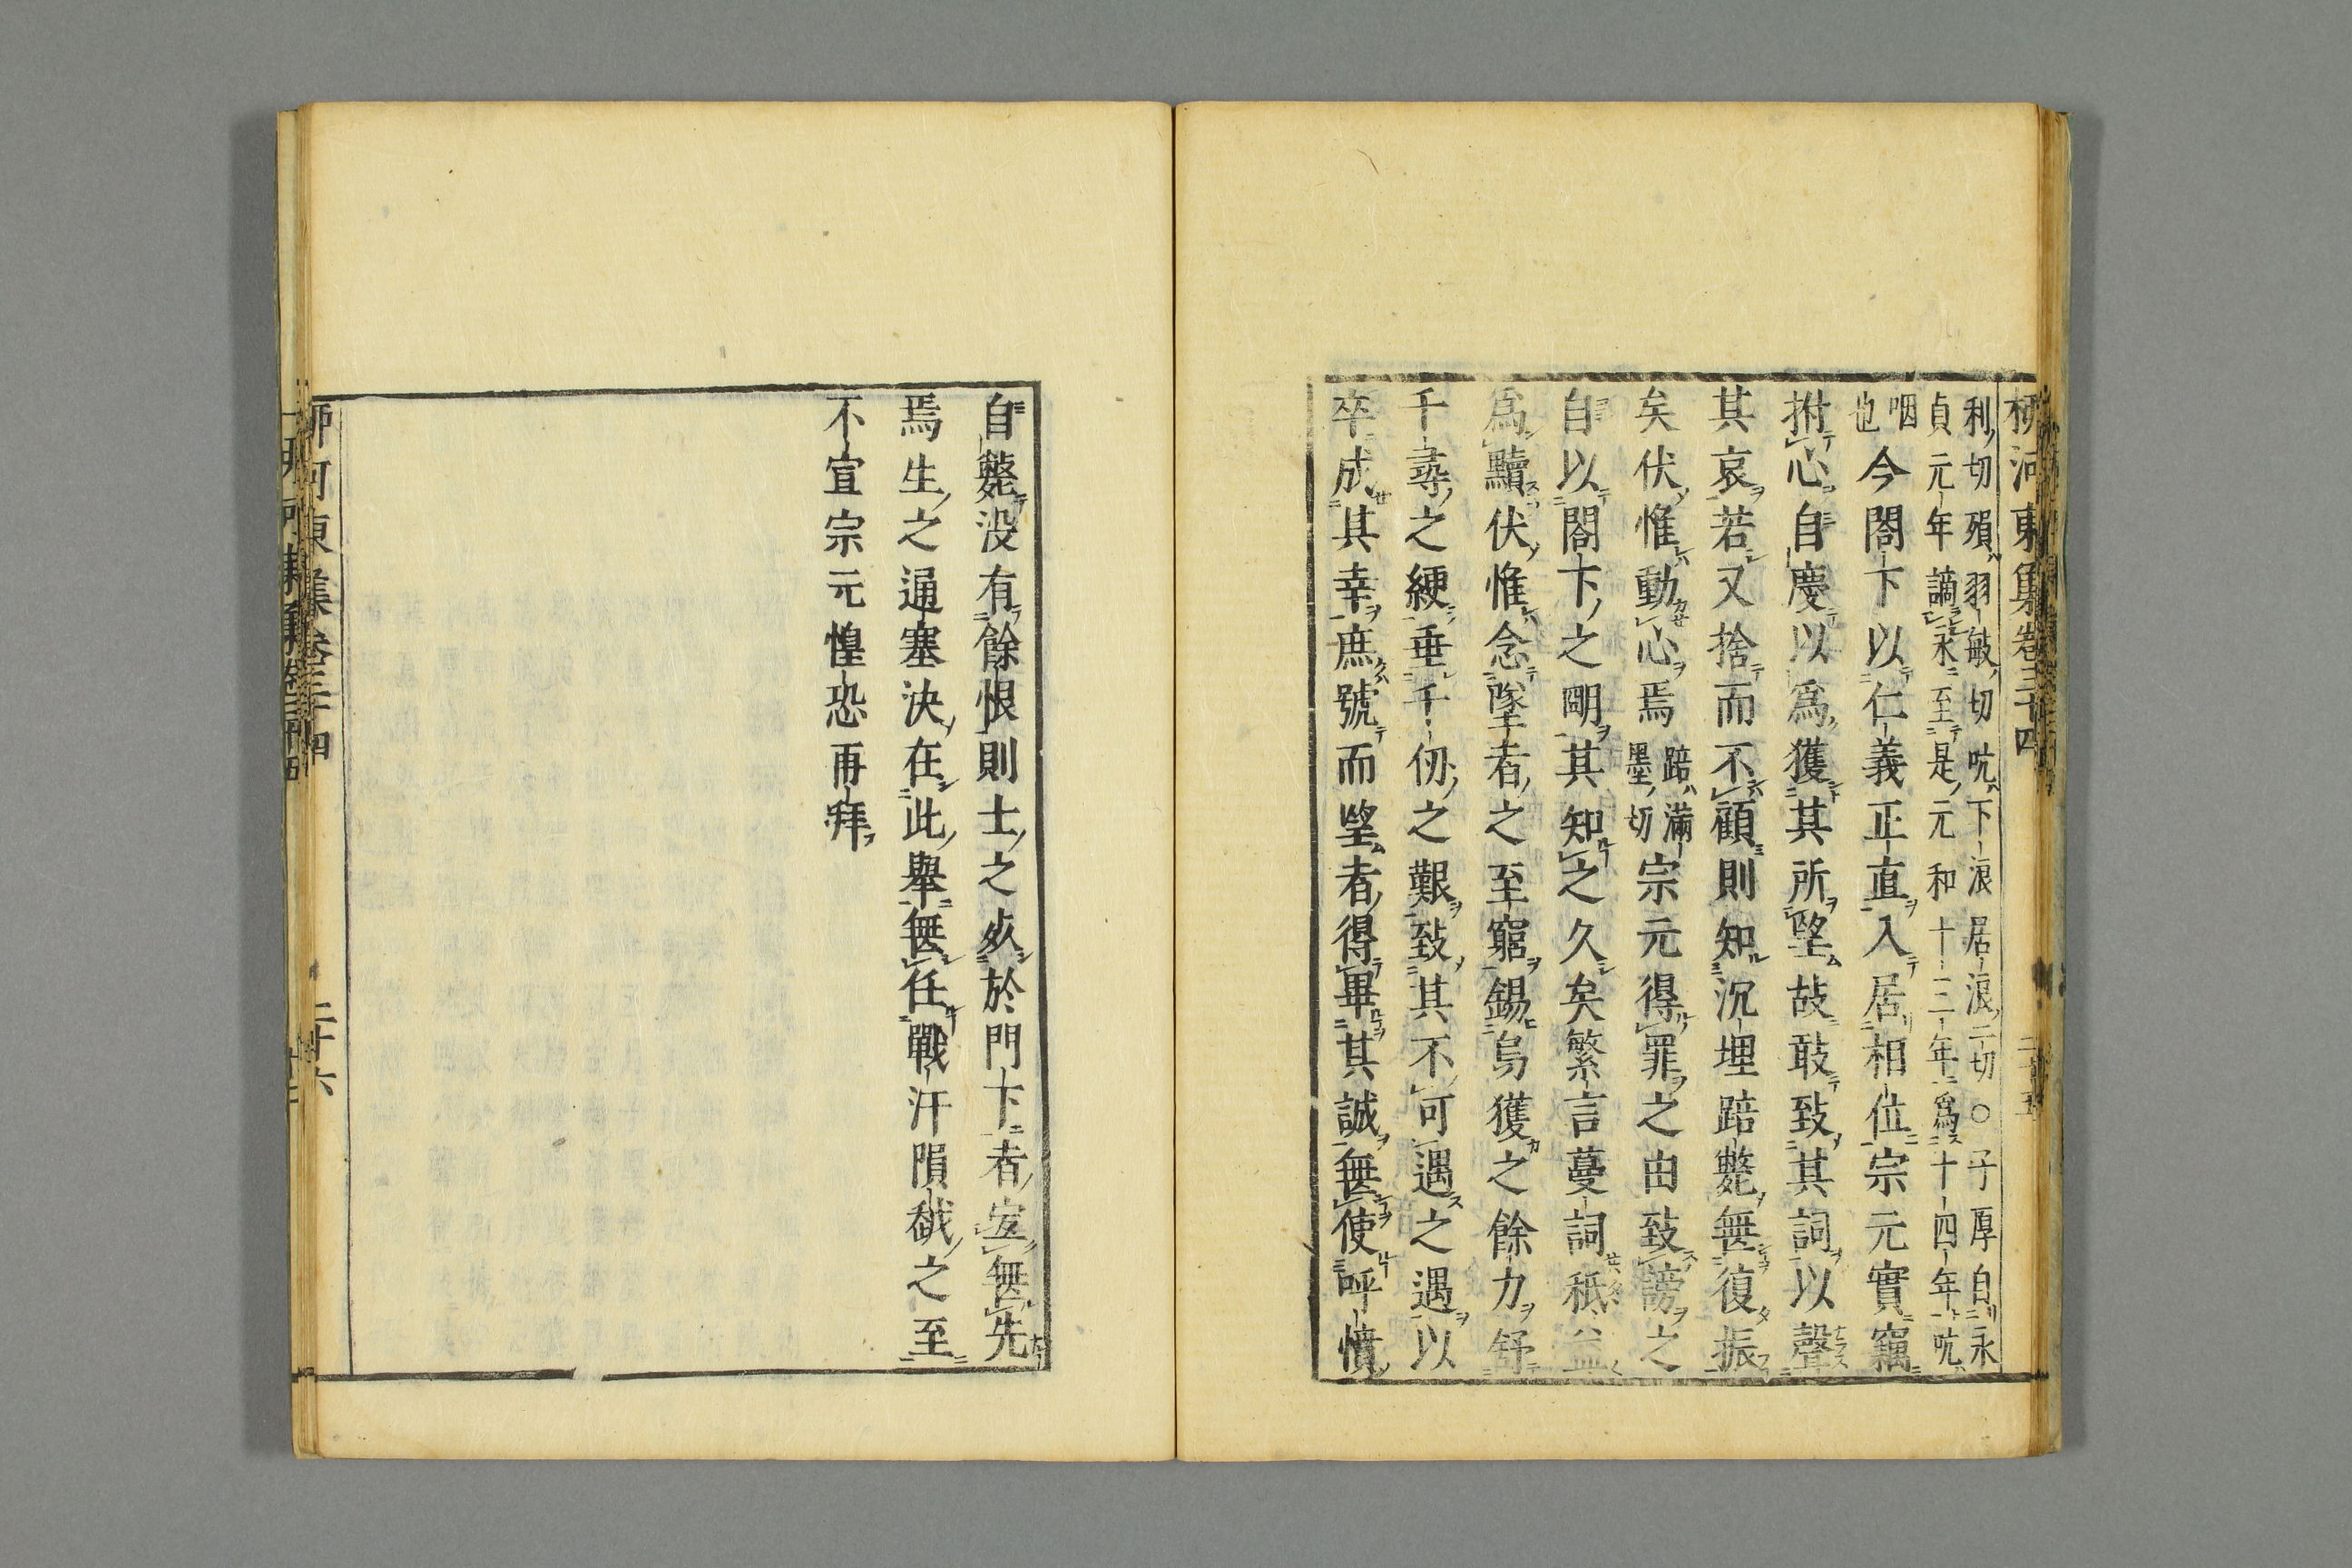 柳河東集卷三十四
利切殞羽敏切吭下浪居浪二切○子厚自永
貞元年謫永至是元和十三年爲十四年吭
咽
也今閤下以仁義正直入居相位宗元實竊
拊心自慶以爲獲其所望故敢致其詞以聲
其哀若又捨而不顧則知沉埋踣斃無復振
矣伏惟動心焉踣滿墨切宗元得罪之由致謗之
自以閤下之明其知之久矣繁言蔓詞秪益
爲黷伏惟念墜者之至窮錫烏獲之餘力舒
千尋之綆垂千仞之艱致其不可遇之遇以
卒成其幸庶號而望者得畢其誠無使呼憤
自斃没有餘恨則士之死於門下者宜無先
焉生之通塞決在此舉無任戰汗隕越之至
不宣宗元惶恐再拜
柳河東集卷三十四
二十六